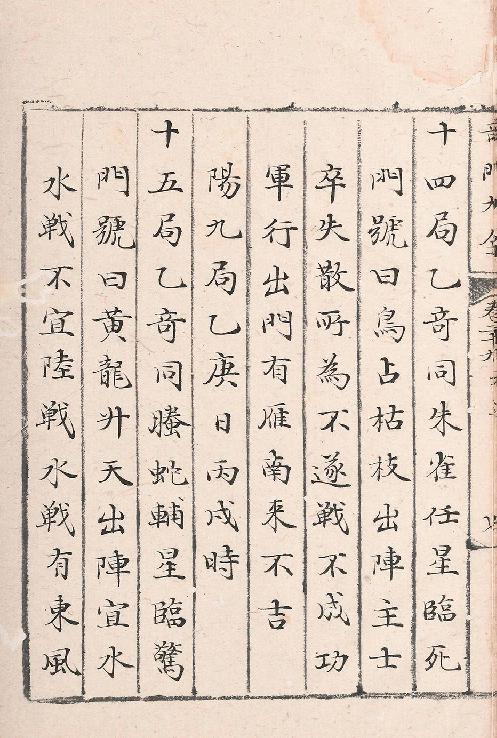 十四局乙奇同朱雀任星臨死
門號曰鳥占枯枝出陣主士
卒失散所為不遂戰不成功
軍行出門有雁南来不吉
陽九局乙庚日丙戌時
十五局乙奇同螣蛇輔星臨驚
門號曰黃龍升天出陣宜水
水戰不宜陸戰水戰有東風